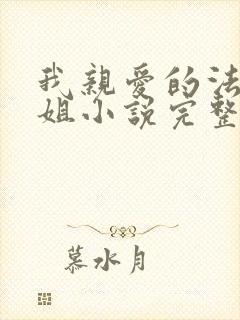 我親愛的法
姐小説完整
慕水月